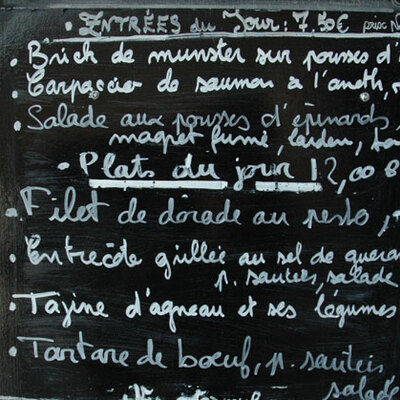 ENTRÉES du JOUR : 7.50€
• Brick de munster sur pousses d'
• Carpaccio de saumon à l'aneth,
• Salade aux pousses d'épinards
magret fumé, lardon,
• Plats du jour 12,00 €
• Filet de dorade au pesto,
• Entrecôte grillée au sel de
p. sautées, salade
• Tajine d'agneau et ses légumes
• Tartare de bœuf, p. sautées
salade